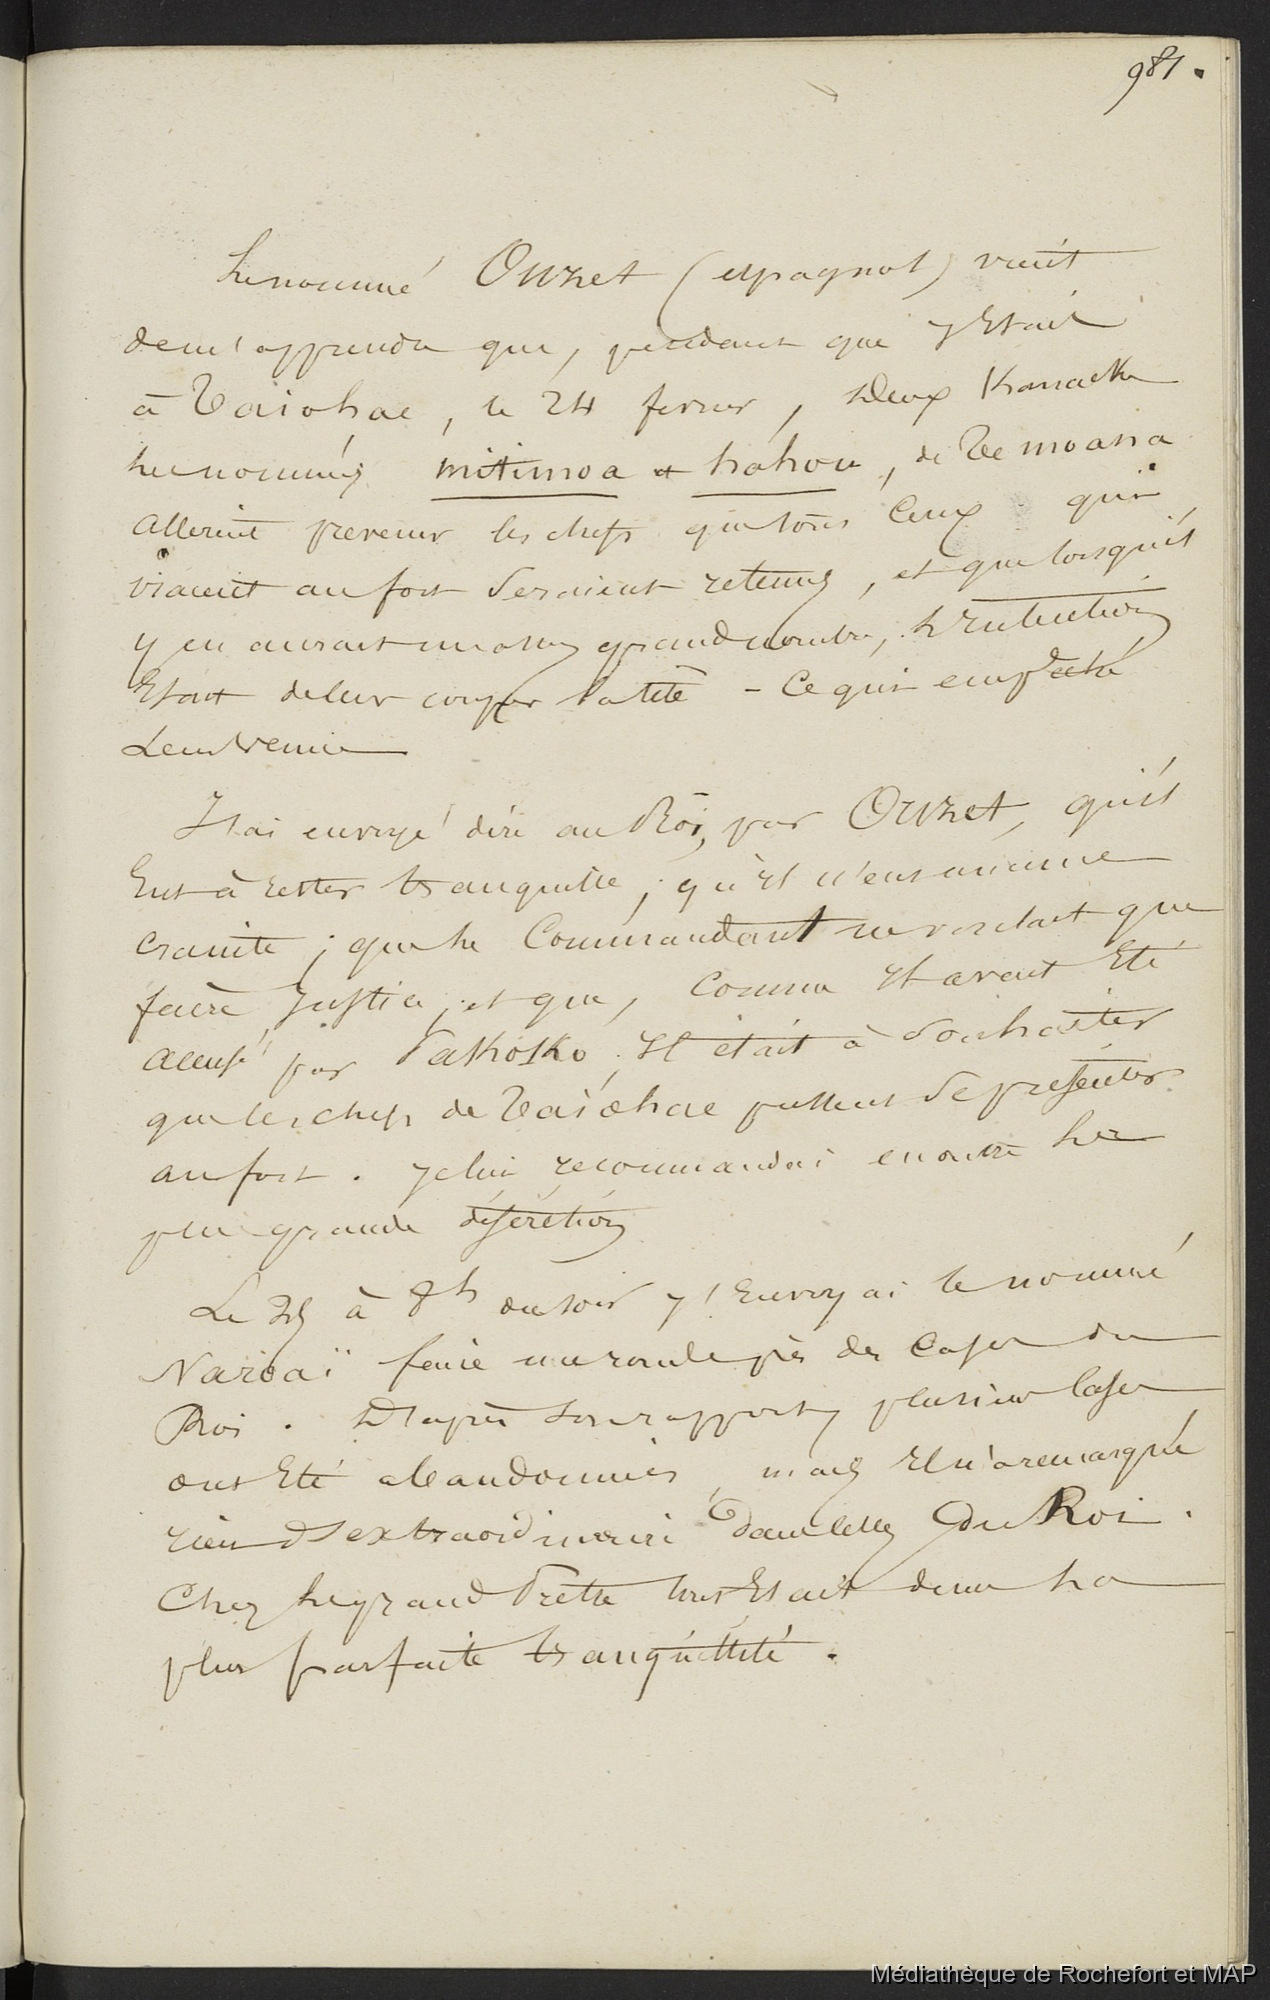 981.
Le nommé Ouzet (espagnol) vient
de m'apprendre que, pendant que j'Etais
à Taiohae, le 24 fevrier, Deux Kanacks
les nommés mitimoa et hahou, de Te moana
allerent prevenir les chefs que tous Ceux qui
viendraient au fort Seraient retenus, et que lorsqu'il
y en aurait un assez grand nombre, L'intention
Etait de leur couper la tête - Ce qui empêcha
Leur venue
J'ai envoyé dire au Roi, par Ouzet, qu'il
Eut à rester tranquille; qu'il n'eut aucune
crainte; que le Commandant ne voulait que
faire Justice, et que, Comme il avait Eté
accusé par Pakoko, il était à Souhaiter
que les chefs de Taiohae pussent Se présenter
au fort. Je lui recommandai en outre la
plus grande discrétion
Le 25 à 8h du soir j'Envoyai le nommé
faire une ronde près des Cases du
Roi. D'après son rapport, plusieurs Cases
ont Eté abandonnées, mais il n'a remarqué
rien d'extraordinaire dans celles du Roi.
Chez le grand Prêtre tout Etait dans la
plus parfaite tranquillité.
Médiathèque de Rochefort et MAP